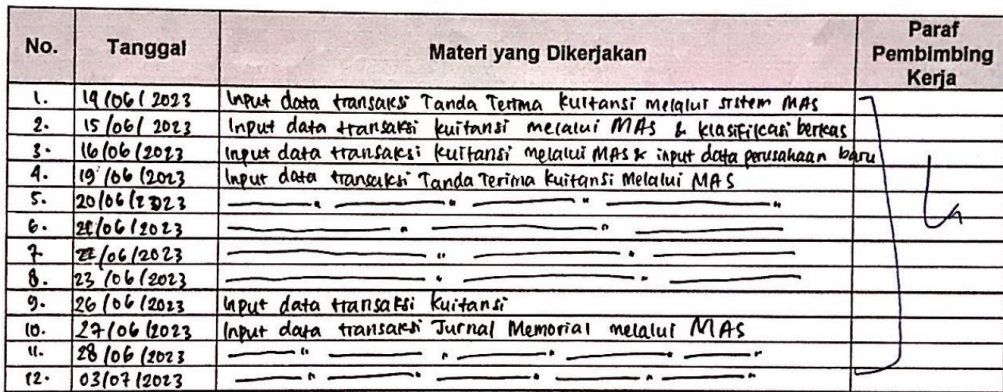 No. Tanggal Materi yang Dikerjakan Paraf Pembimbing Kerja
1. 14/06/2023 Input data transaksi Tanda Terima kuitansi melalui sistem MAS
2. 15/06/2023 Input data transaksi kuitansi melalui MAS & klasifikasi berkas
3. 16/06/2023 Input data transaksi kuitansi melalui MAS & input data perusahaan baru
4. 19/06/2023 Input data transaksi Tanda Terima kuitansi Melalui MAS
5. 20/06/2023 — " — " — " — "
6. /06/2023 — " — " —
7. /06/2023 — " — " —
8. 23/06/2023 — " — " —
9. 26/06/2023 Input data transaksi kuitansi
10. 27/06/2023 Input data transaksi Jurnal Memorial melalui MAS
11. 28/06/2023 — " — " — " — " — "
12. 03/07/2023 — " — " — " — " — "